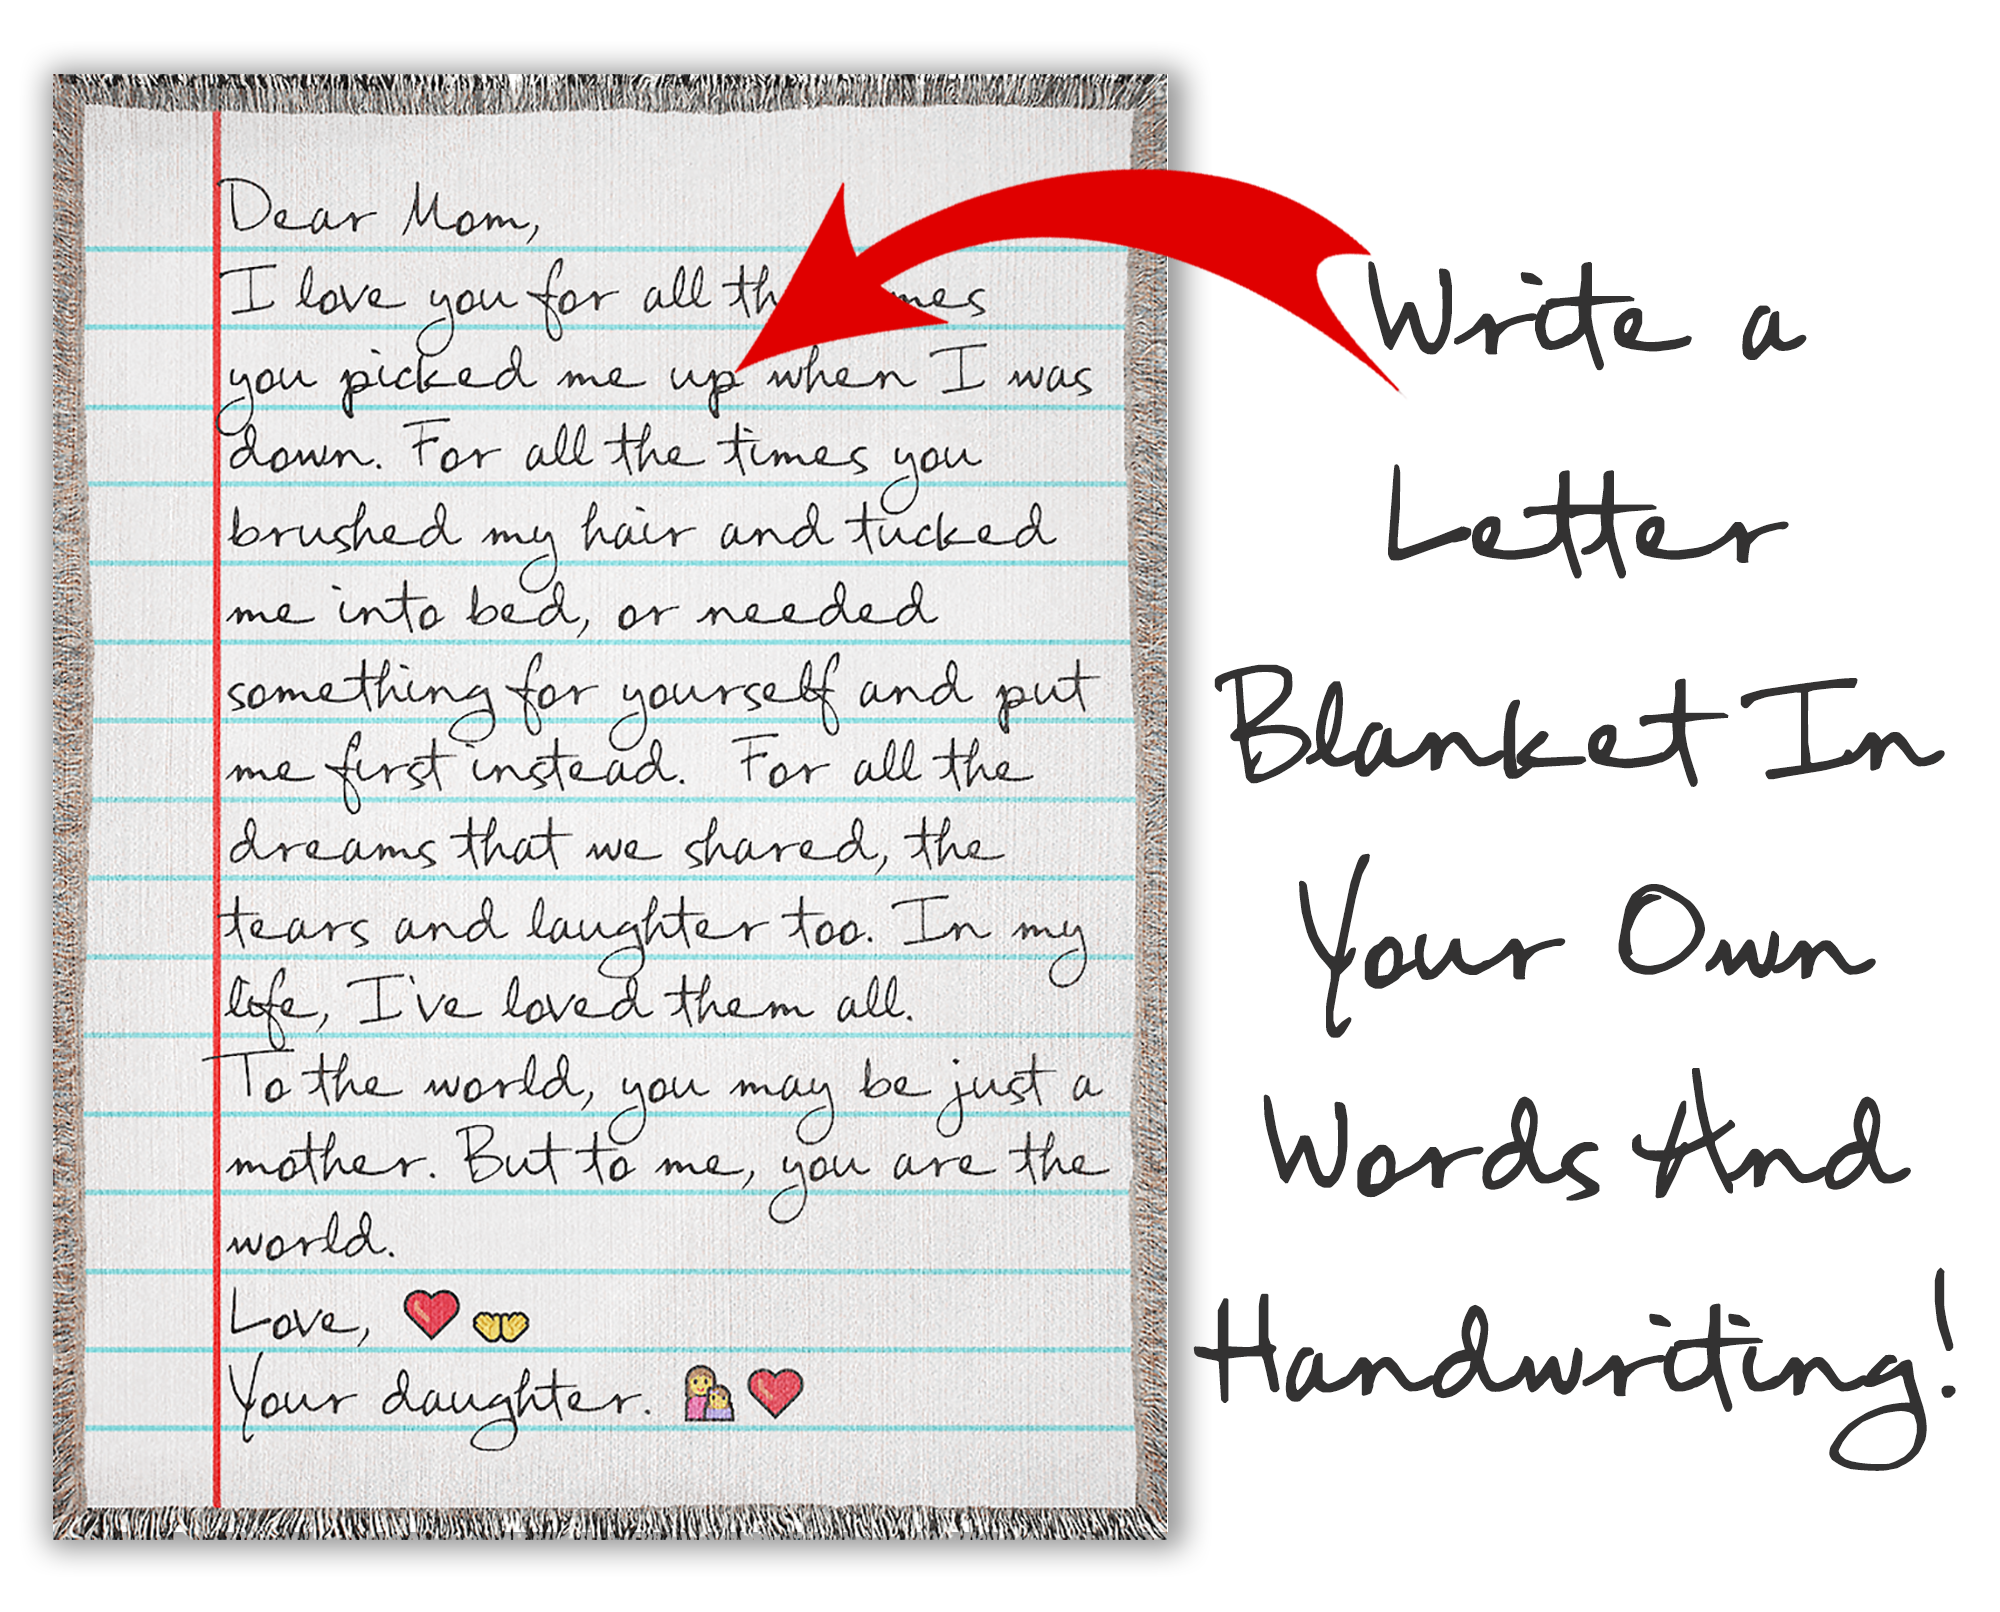 Dear Mom,
I love you for all the mes
you picked me up when I was
down. For all the times you
brushed my hair and tucked
me into bed, or needed
something for yourself and put
me first instead. For all the
dreams that we shared, the
tears and laughter too. In my
life, I've loved them all.
To the world, you may be just a
mother. But to me, you are the
world.
Love, ❤️👐
Your daughter. 👩‍👧❤️
Write a
Letter
Blanket In
Your Own
Words And
Handwriting!